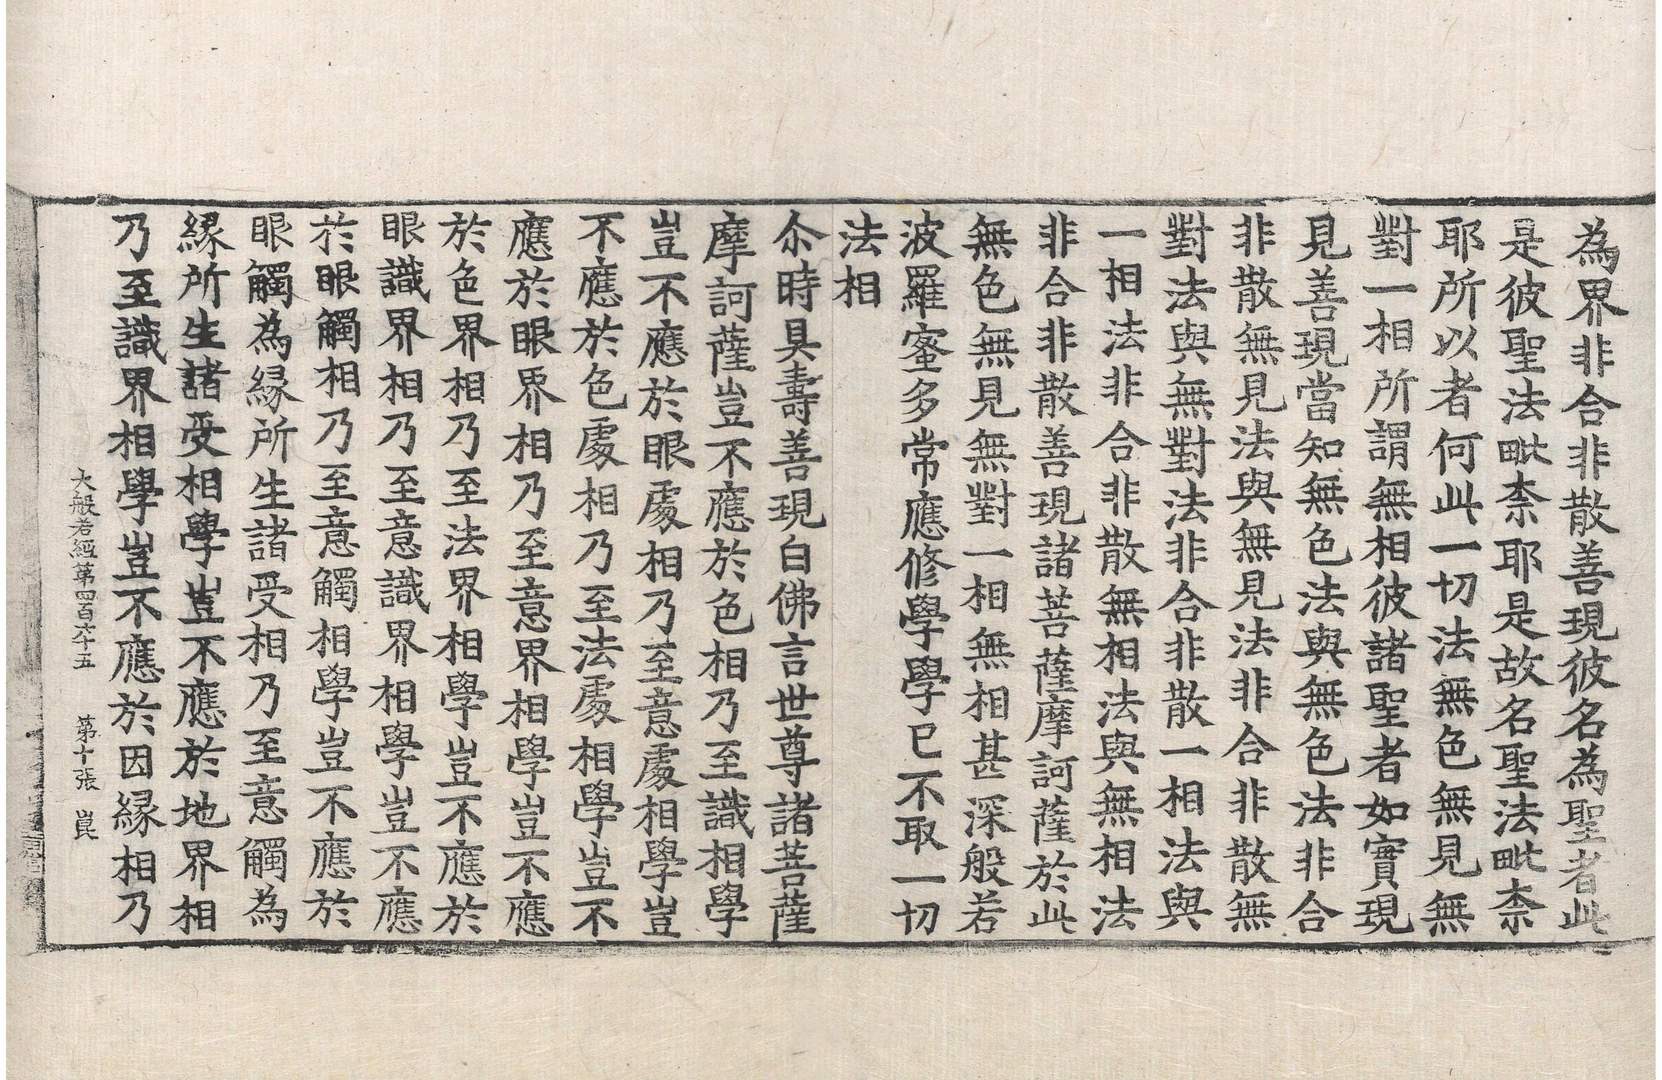 為界非合非散善現彼名為聖者此
是彼聖法毗柰耶是故名聖法毗柰
耶所以者何此一切法無色無見無
對一相所謂無相彼諸聖者如實現
見善現當知無色法與無色法非合
非散無見法與無見法非合非散無
對法與無對法非合非散一相法與
一相法非合非散無相法與無相法
非合非散善現諸菩薩摩訶薩於此
無色無見無對一相無相甚深般若
波羅蜜多常應修學學已不取一切
法相
尒時具壽善現白佛言世尊諸菩薩
摩訶薩豈不應於色相乃至識相學
豈不應於眼處相乃至意處相學豈
不應於色處相乃至法處相學豈不
應於眼界相乃至意界相學豈不應
於色界相乃至法界相學豈不應於
眼識界相乃至意識界相學豈不應
於眼觸相乃至意觸相學豈不應於
眼觸為緣所生諸受相乃至意觸為
緣所生諸受相學豈不應於地界相
乃至識界相學豈不應於因緣相乃
大般若經第四百六十五 第十張 崑